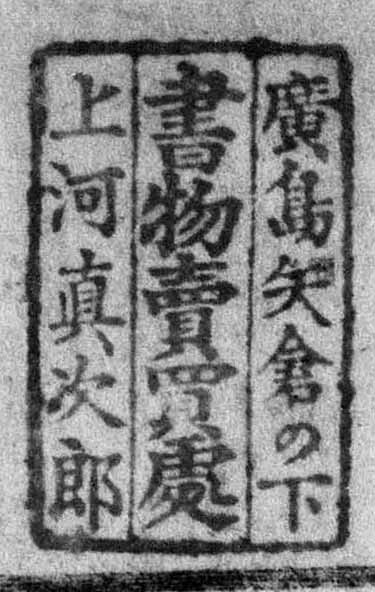 廣島矢倉の下
書物賣買處
上河眞次郎